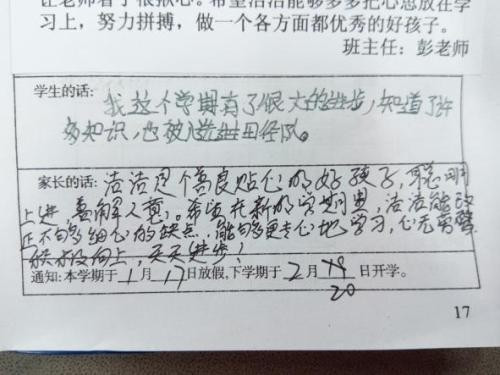 让老师看了很揪心。希望洁洁能够多多把心思放在学
习上，努力拼搏，做一个各方面都优秀的好孩子。
班主任：彭老师
学生的话：
我这个学期有了很大的进步，知道了许
多知识，也被选进田径队。
家长的话：洁洁是个善良贴心的好孩子，聪明
上进，善解人意。希望在新的学期里，洁洁能改
正不够细心的缺点，能够更专心地学习，心无旁骛
积极向上，天天进步！
通知：本学期于1月17日放假，下学期于2月19日开学。
20
17